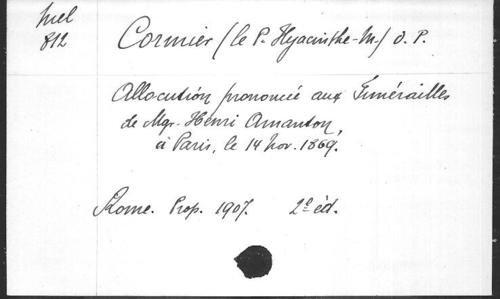 Mel
812
Cormier (le P. Hyacinthe-M.) O. P.
Allocution prononcée aux Funérailles
de Mgr. Henri Amanton,
à Paris, le 14 Nov. 1869.
Rome. Prop. 1907. 2e éd.